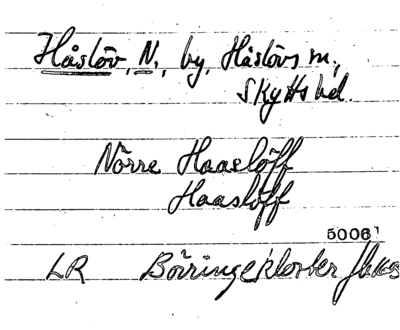 Håslöv, N., by, Håslövs sn.,
Skytts hd.
Nörre Haaslöff
Haaslöff
5006¹
LR Börringekloster